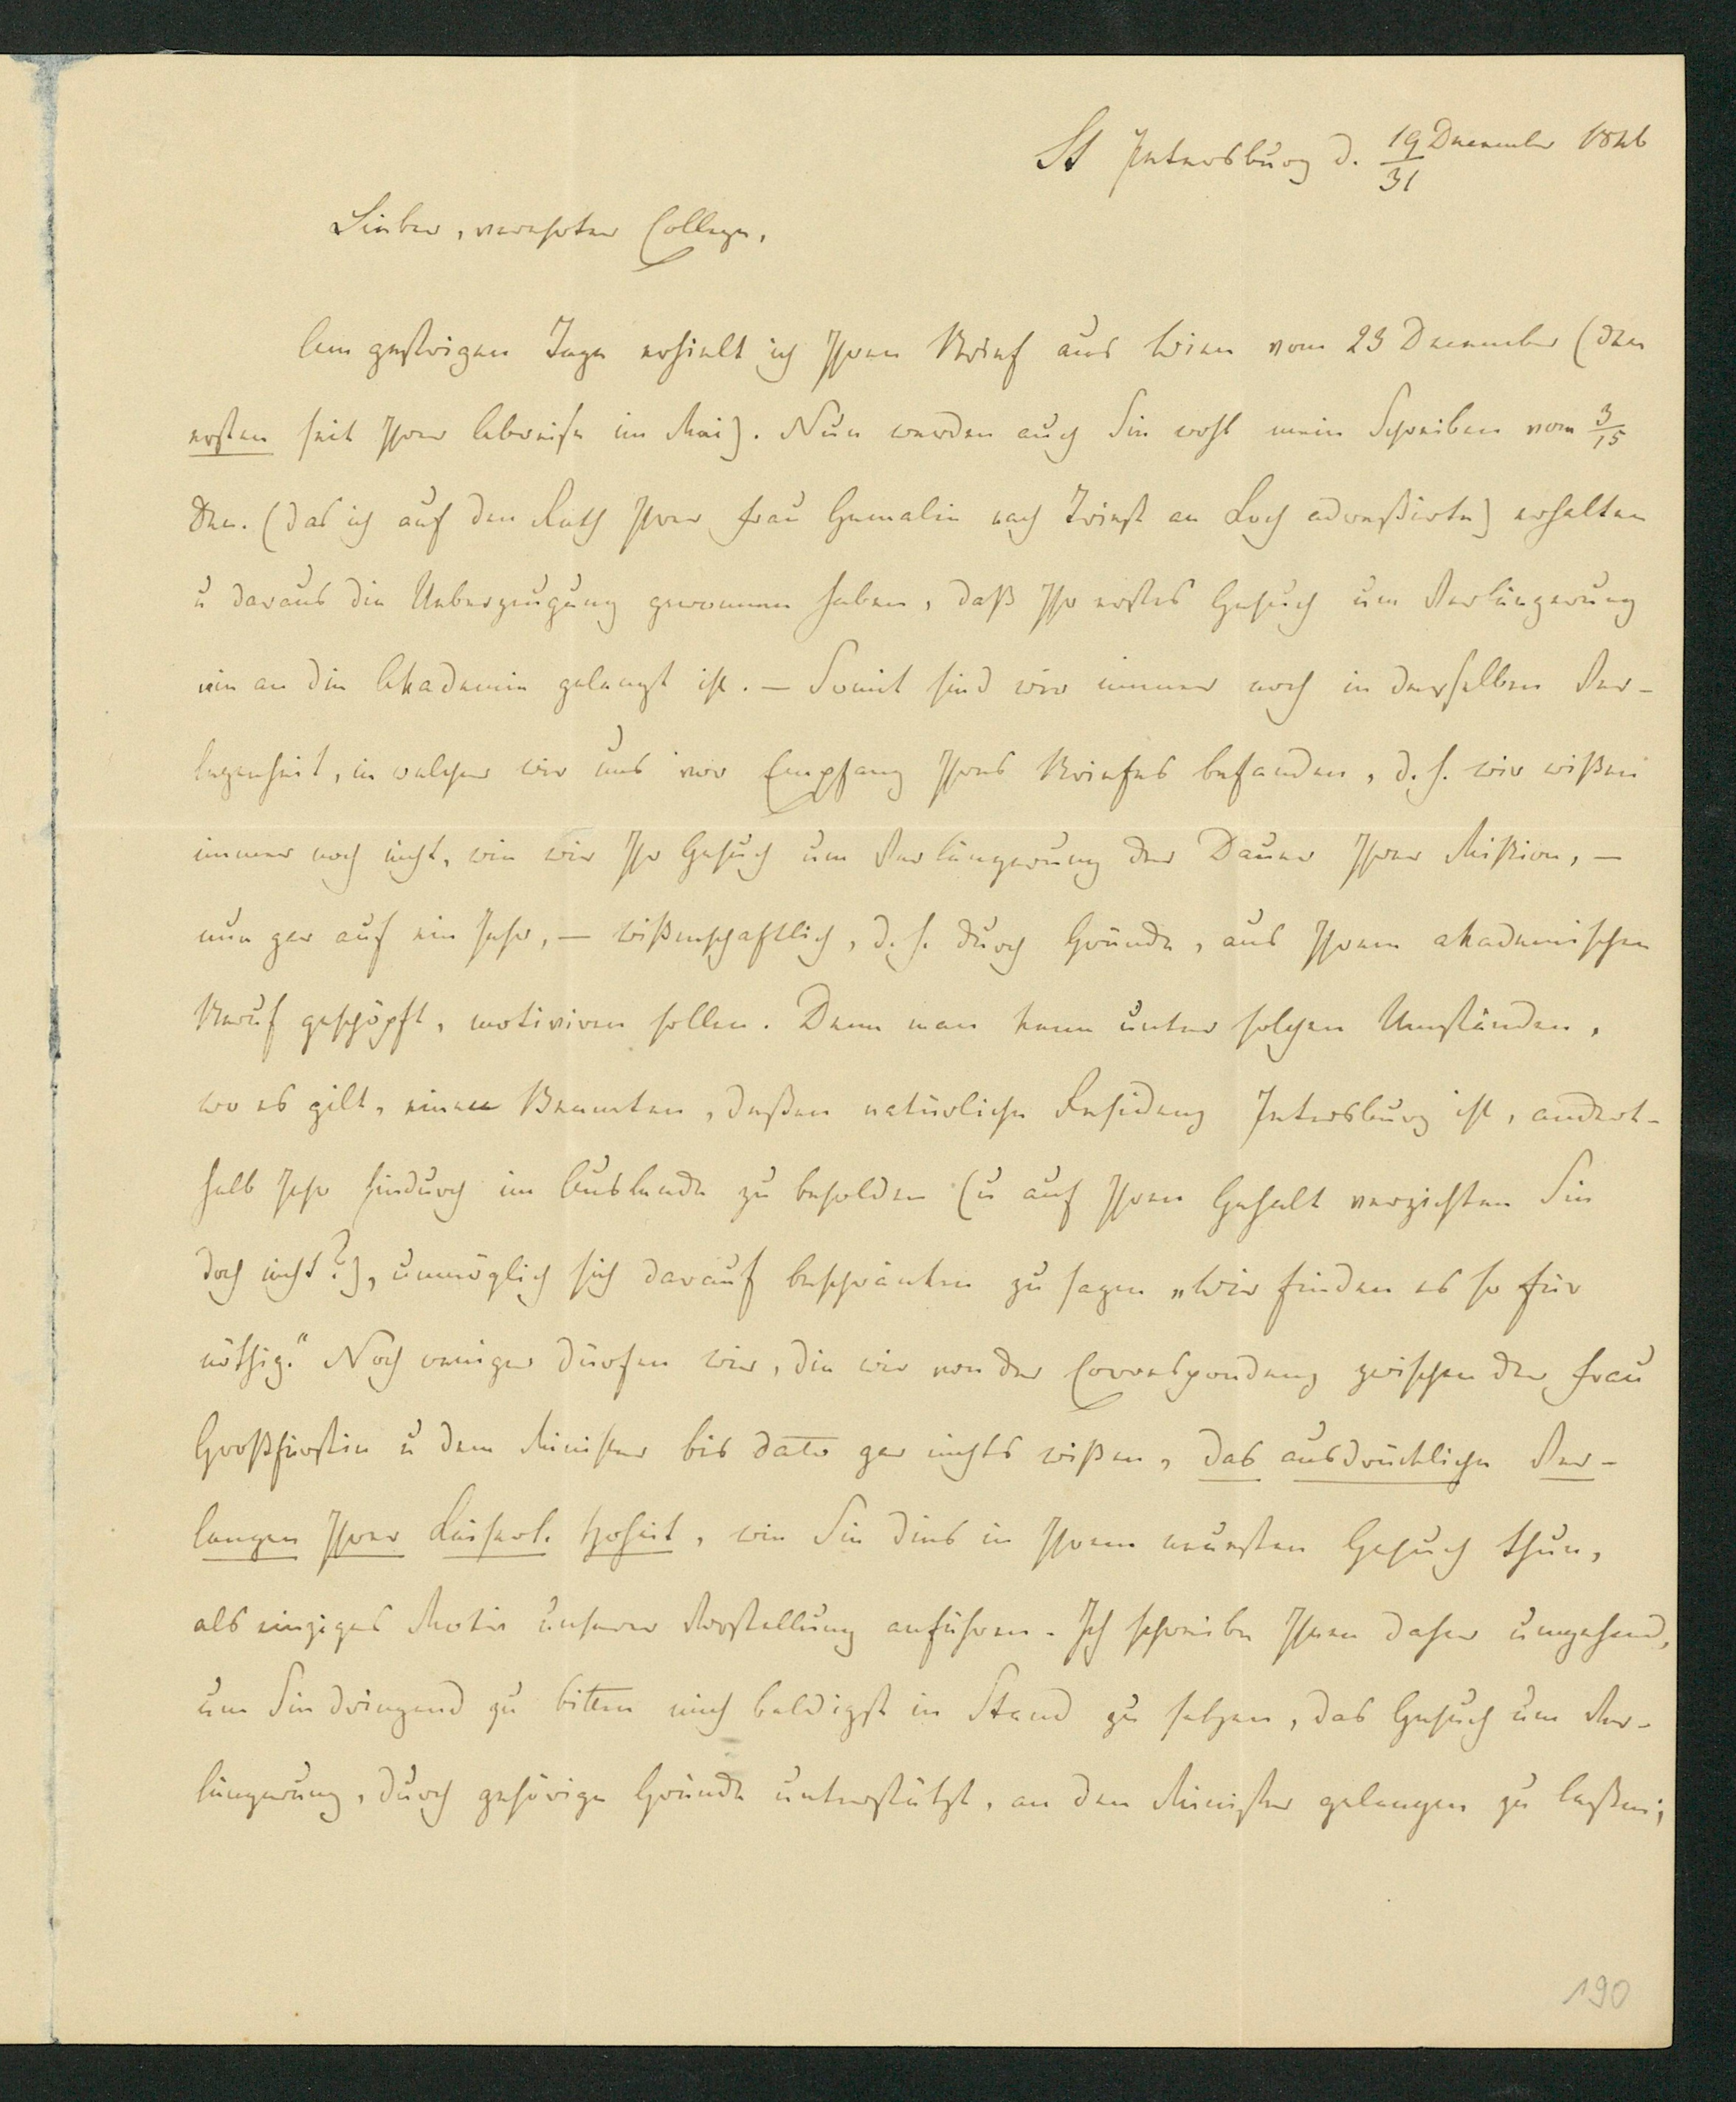 St Petersburg d. 19/31 December 1846
Lieber, verehrter College,
Am gestrigen Tage erhielt ich Ihren Brief aus Wien vom 23 December (den
ersten seit Ihrer Abreise im Mai). Nun werden auch Sie wohl mein Schreiben vom 3/15
Dec. (das ich auf den Rath Ihrer Frau Gemalin nach Triest an Loch adreßirte) erhalten
u daraus die Ueberzeugung gewonnen haben, daß Ihr erstes Gesuch um Verlängerung
nie an die Akademie gelangt ist. — Somit sind wir immer noch in derselben Ver-
legenheit, in welcher wir uns vor Empfang Ihres Briefes befanden, d. h. wir wißen
immer noch nicht, wie wir Ihr Gesuch um Verlängerung der Dauer Ihrer Mißion, —
nun gar auf ein Jahr, — wißenschaftlich, d. h. durch Gründe, aus Ihrem akademischen
Beruf geschöpft, motiviren sollen. Denn man kann unter solchen Umständen,
wo es gilt, einen Beamten, deßen natürliche Residenz Petersburg ist, andert-
halb Jahr hindurch im Auslande zu besolden (u auf Ihren Gehalt verzichten Sie
doch nicht?), unmöglich sich darauf beschränken zu sagen „Wir finden es so für
nöthig.“ Noch weniger dürfen wir, die wir von der Correspondenz zwischen der Frau
Großfürstin u dem Minister bis dato gar nichts wißen, das ausdrückliche Ver-
langen Ihrer Kaiserl. Hoheit, wie Sie dies in Ihrem neuesten Gesuch thun,
als einziges Motiv unserer Vorstellung anführen. Ich schreibe Ihnen daher umgehend,
um Sie dringend zu bitten mich baldigst in Stand zu setzen, das Gesuch um Ver-
längerung, durch gehörige Gründe unterstützt, an den Minister gelangen zu laßen;
190